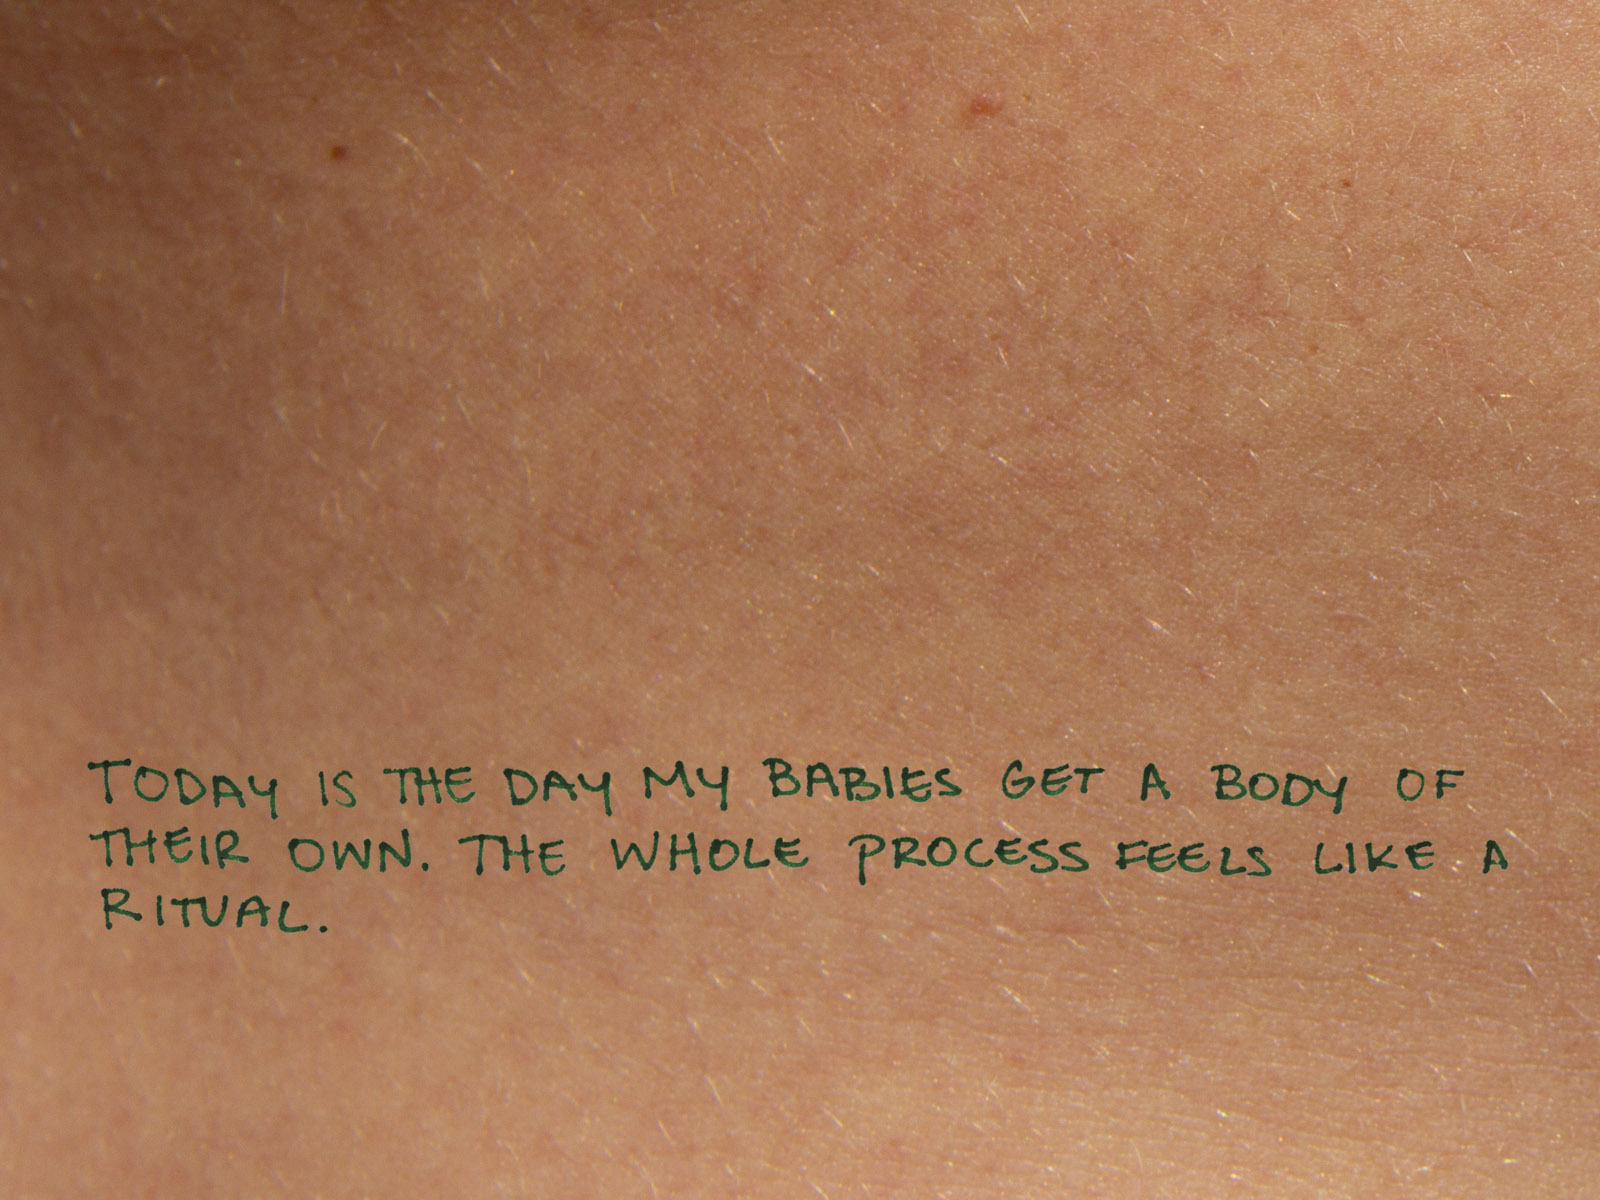 TODAY IS THE DAY MY BABIES GET A BODY OF
THEIR OWN. THE WHOLE PROCESS FEELS LIKE A
RITUAL.